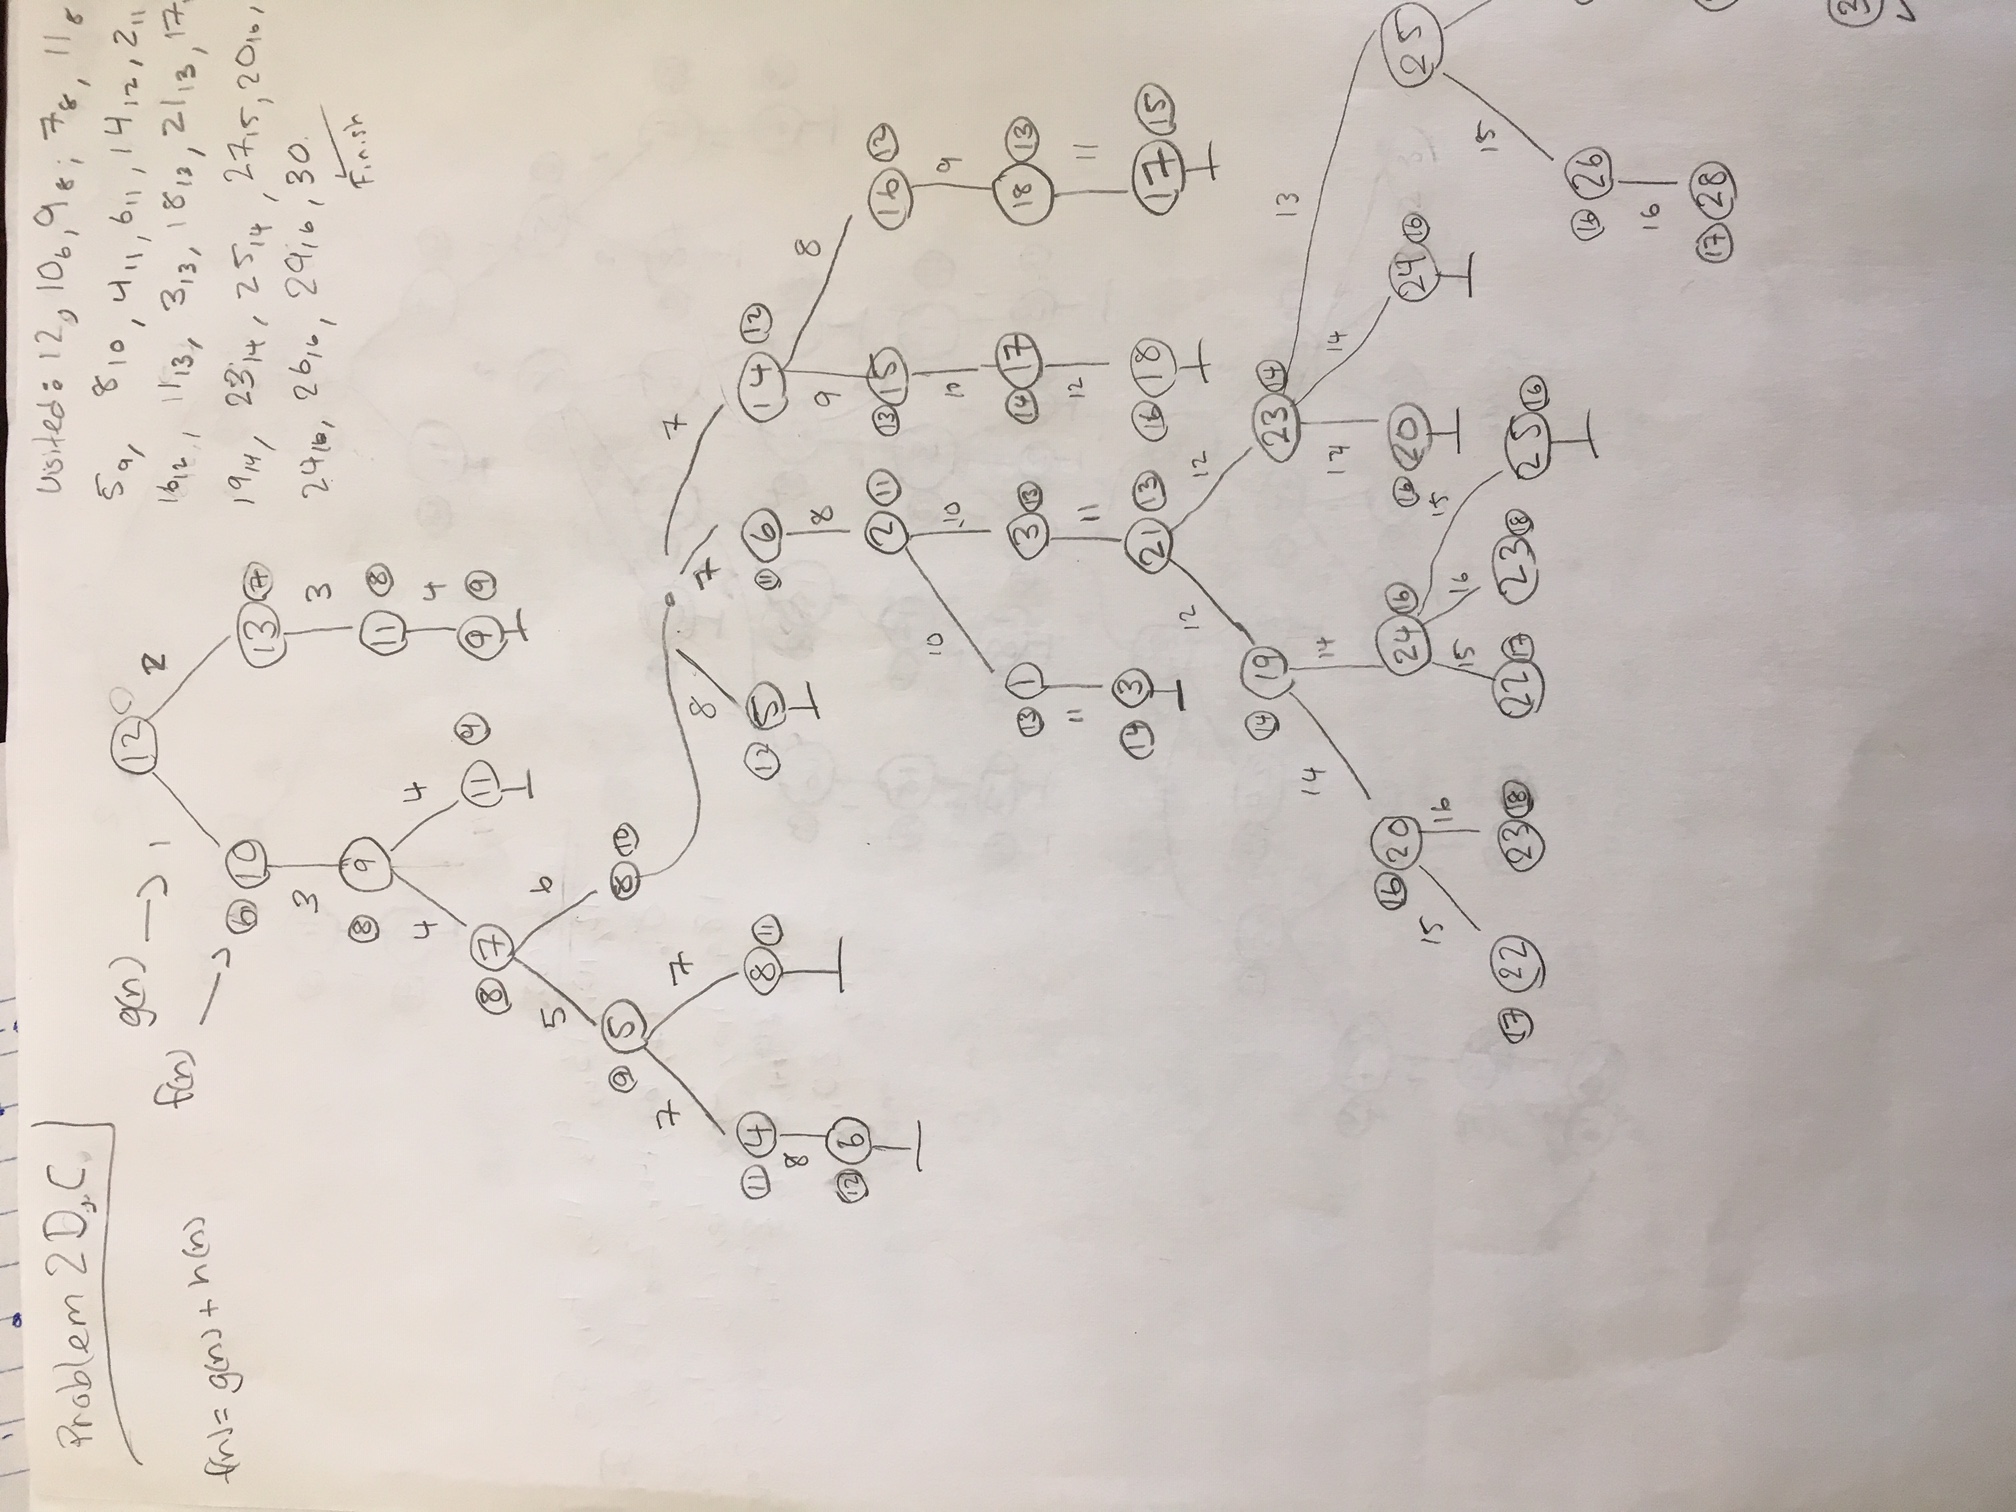 Problem 2D,C
Visited: 12, 10₆, 9₈, 7₈, 11₈
5₉, 8₁₀, 4₁₁, 6₁₁, 14₁₂, 2₁₁
16₁₂, 11₁₃, 3₁₃, 18₁₃, 21₁₃, 17
19₁₄, 23₁₄, 25₁₄, 27₁₅, 20₁₆,
24₁₆, 26₁₆, 29₁₆, 30.
Finish
g(n) → 1
12 0
2
f(n) →
f(n) = g(n) + h(n)
6 10
13 7
3
3
8 9
11 8
4 4
4
8 7
11 9
9 9
5 6
9 5
8 10
7 7
8 7 7
11 4
8 11
12 5
11 6
14 12
8
8 9 8
12 6
2 11
13 15
16 12
10 10 10 9
13 1
3 13
14 17
18 13
11 11 12 11
14 3
21 13
16 18
17 15
12 12
14 19
23 14
13
14 14 14
16 20
24 16
16 20
24 16
25
15 16 15 16 15
15
17 22
23 18
22 17
23 18
25 16
16 26
16
17 28
3